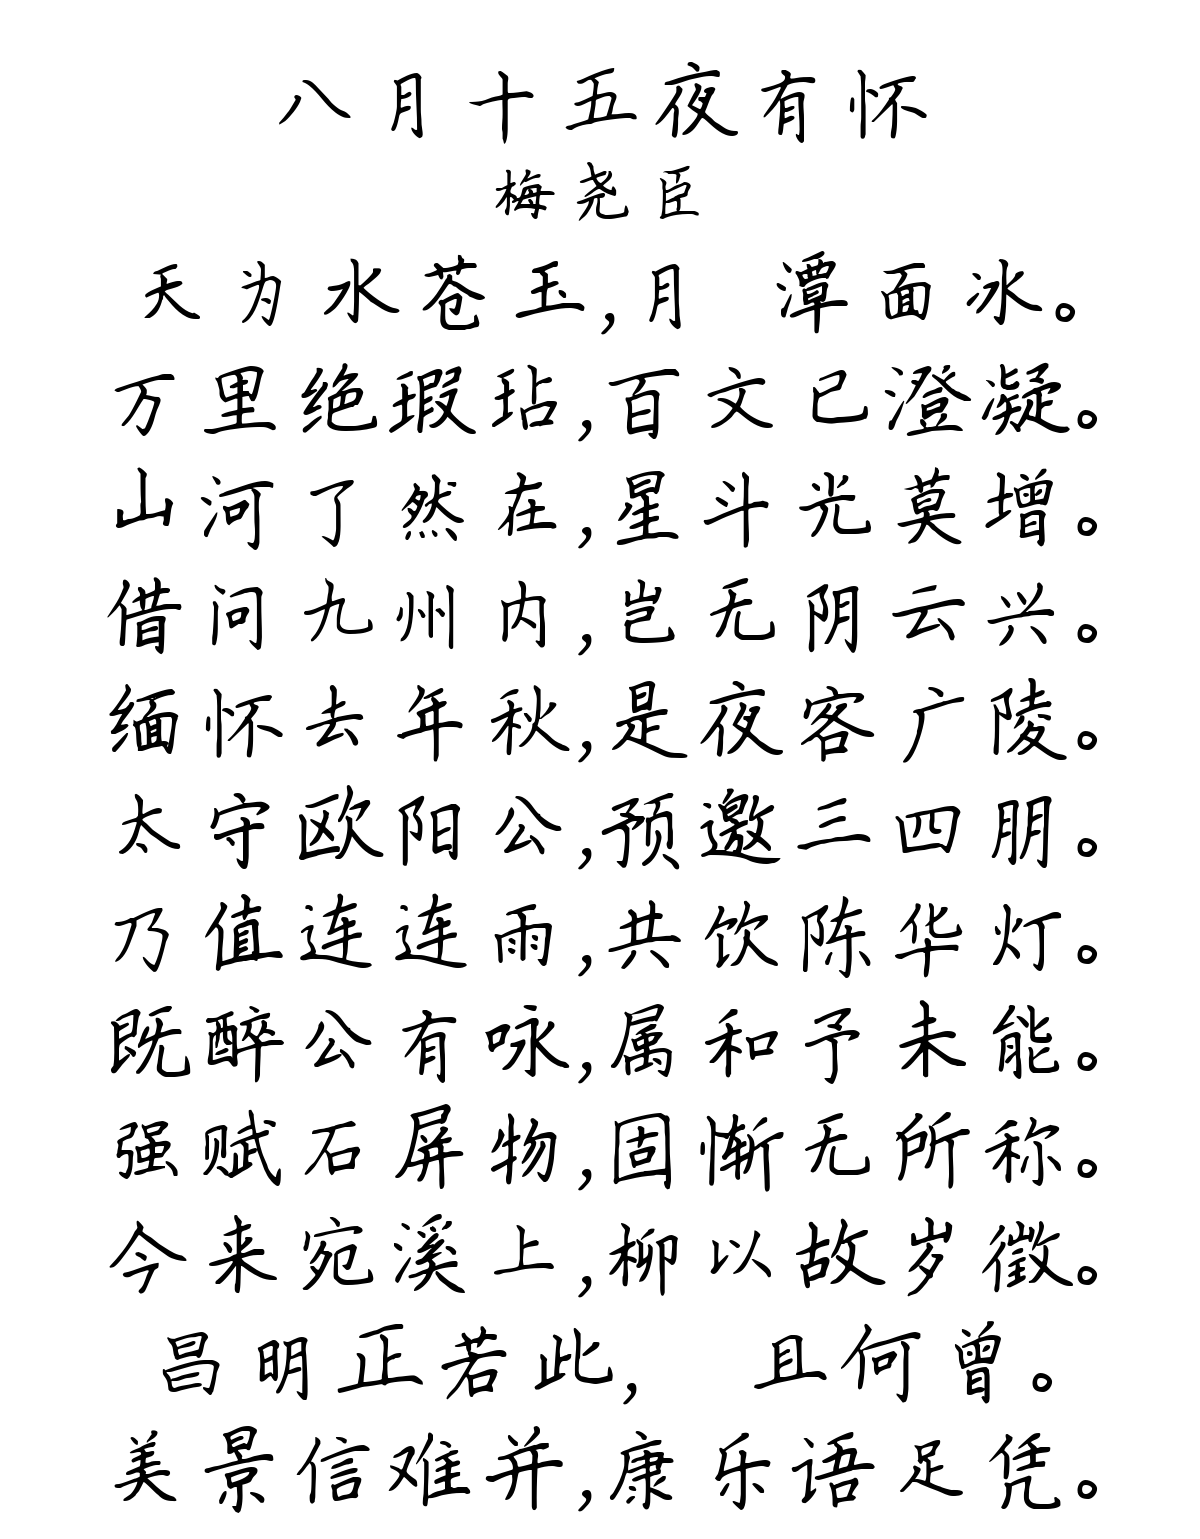 八月十五夜有怀
梅尧臣
天为水苍玉,月 潭面冰。
万里绝瑕玷,百文已澄凝。
山河了然在,星斗光莫增。
借问九州内,岂无阴云兴。
缅怀去年秋,是夜客广陵。
太守欧阳公,预邀三四朋。
乃值连连雨,共饮陈华灯。
既醉公有咏,属和予未能。
强赋石屏物,固惭无所称。
今来宛溪上,柳以故岁徵。
昌明正若此, 且何曾。
美景信难并,康乐语足凭。